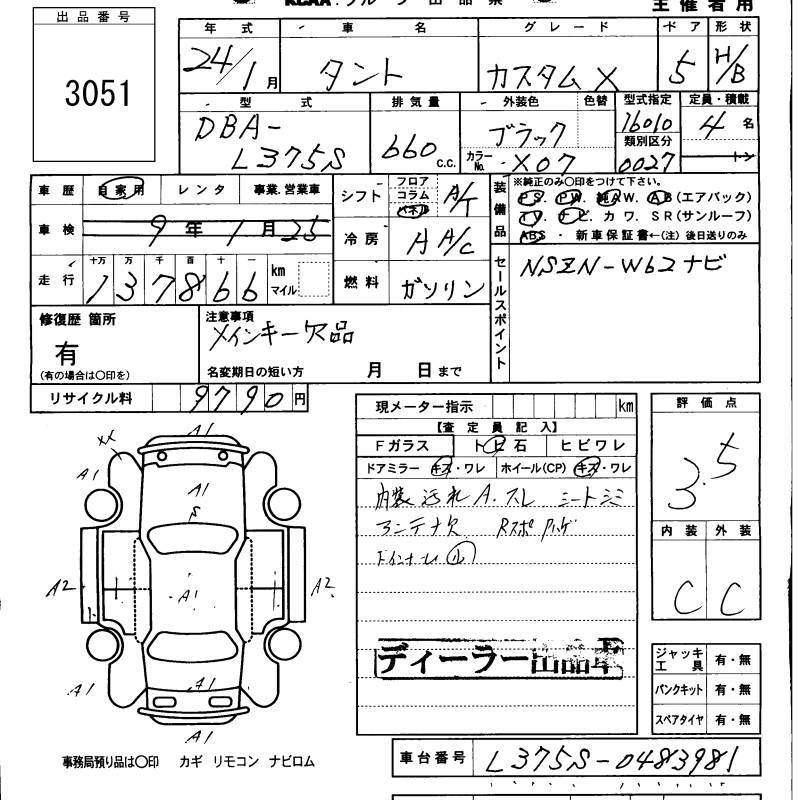 主催者用
出品番号
3051
年式 車名 グレード ドア 形状
24/1月 タント カスタムX 5 H/B
型式 排気量 外装色 色替 型式指定 定員・積載
DBA-L375S 660 C.C. ブラック 16010 4名
カラーNo. X07 類別区分 0027 トン
車歴 自家用 レンタ 事業.営業車
シフト フロア コラム パネル A/T
装備品 ※純正のみ〇印をつけて下さい。
PS. PW. 純AW. AB(エアバック)
TV. ナビ. カワ. SR(サンルーフ)
ABS ・ 新車保証書←(注) 後日送りのみ
車検 9年1月25
冷房 A A/C
走行 十万 万 千 百 十 一
137866 km マイル
燃料 ガソリン
セールスポイント NSZN-W62ナビ
修復歴 箇所
有
(有の場合は〇印を)
注意事項
メインキー欠品
名変期日の短い方 月 日まで
リサイクル料 9790円
現メーター指示 km
【査定員記入】
Fガラス トビ石 ヒビワレ
ドアミラー キズ・ワレ ホイール(CP) キズ・ワレ
内装汚れ A.スレ シート
アンテナ欠 Rスポ
評価点
3.5
内装 外装
C C
ディーラー出品車
XX
A1
A1
A1
S
A1
A2
A1
A2
A1
A1
A1
A1
ジャッキ工具 有・無
パンクキット 有・無
スペアタイヤ 有・無
事務局預り品は〇印 カギ リモコン ナビロム
車台番号 L375S-0483981